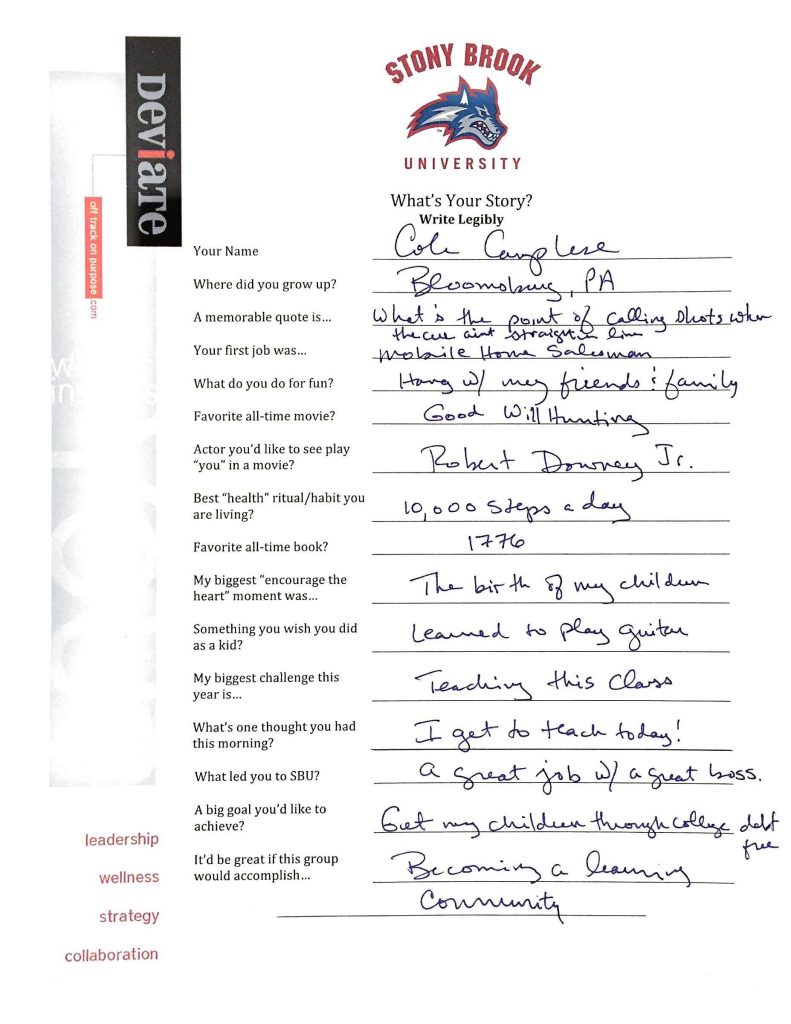 STONY BROOK
UNIVERSITY
DeviaTe
off track on purpose.com
What's Your Story?
Write Legibly
Your Name Cole Camplese
Where did you grow up? Bloomsburg, PA
A memorable quote is... What's the point of calling shots when
the cue aint straight in line
Your first job was... Mobile Home Salesman
What do you do for fun? Hang w/ my friends & family
Favorite all-time movie? Good Will Hunting
Actor you'd like to see play
"you" in a movie? Robert Downey Jr.
Best "health" ritual/habit you
are living? 10,000 steps a day
Favorite all-time book? 1776
My biggest "encourage the
heart" moment was... The birth of my children
Something you wish you did
as a kid? Learned to play guitar
My biggest challenge this
year is... Teaching this class
What's one thought you had
this morning? I get to teach today!
What led you to SBU? A great job w/ a great boss.
A big goal you'd like to
achieve? Get my children through college debt
free
It'd be great if this group
would accomplish... Becoming a learning
Community
leadership
wellness
strategy
collaboration